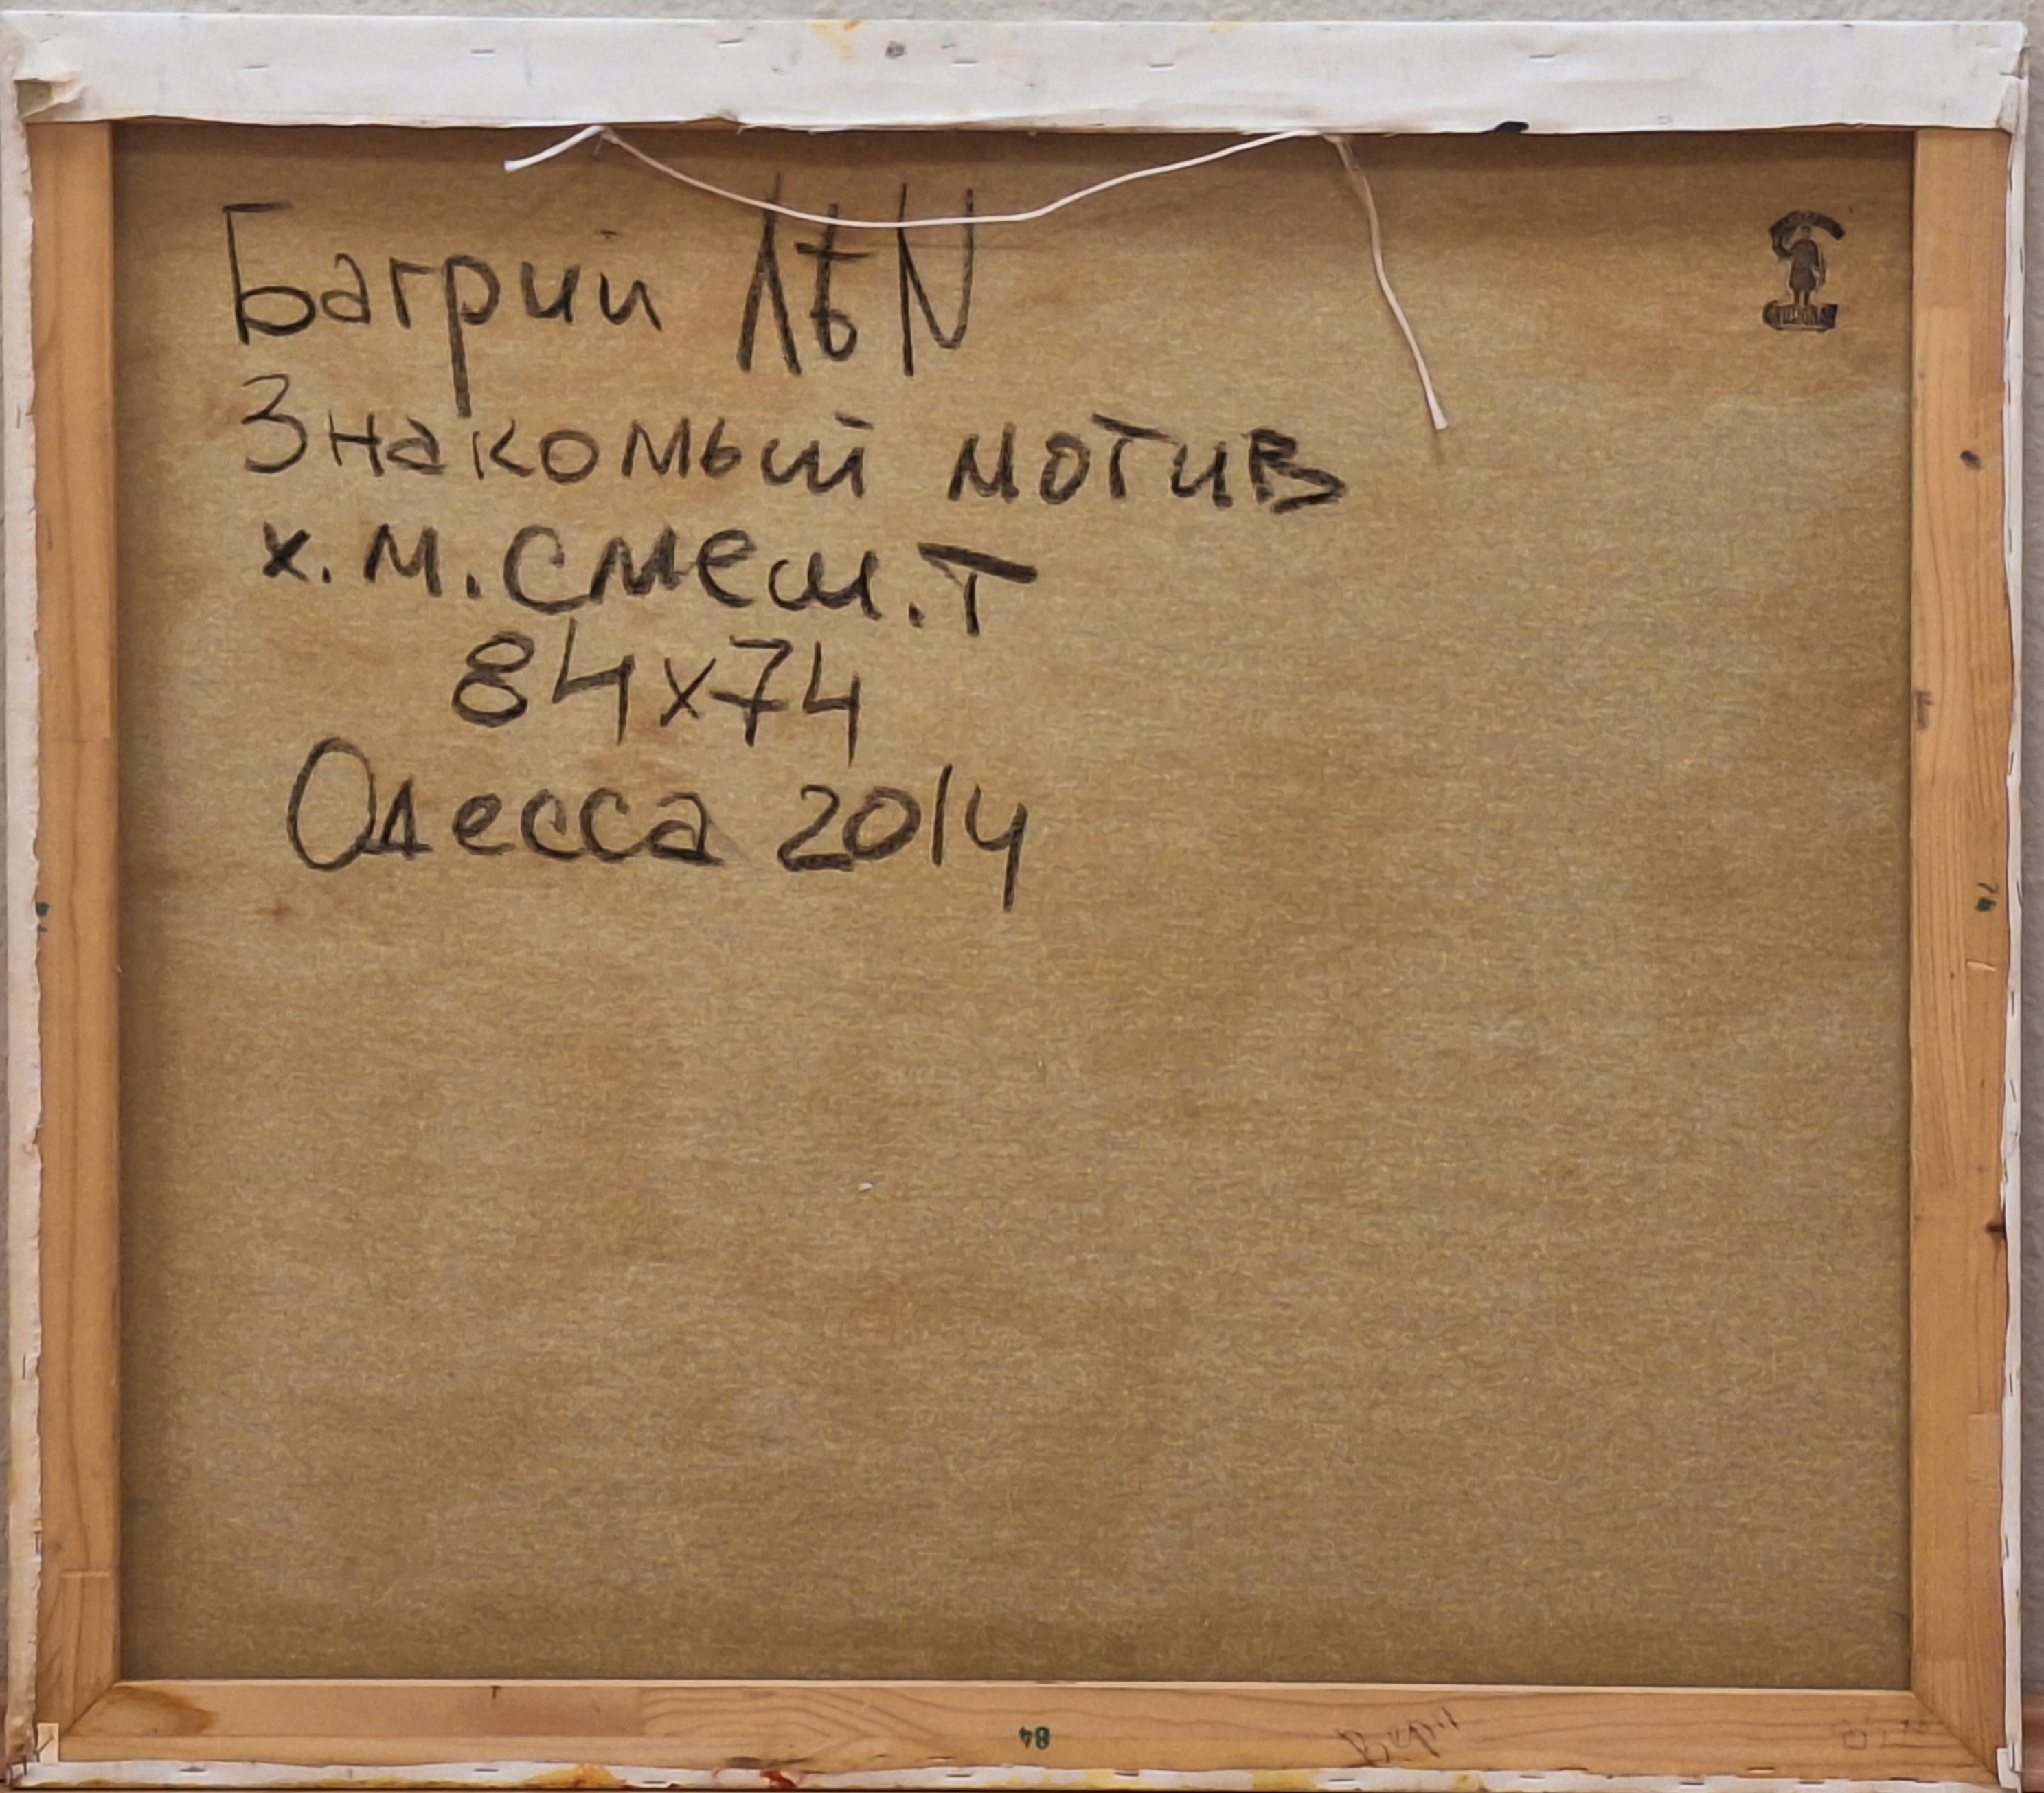 Багрий Л&N
Знакомый мотив
х.м.смеш.т
84х74
Одесса 2014
74
84